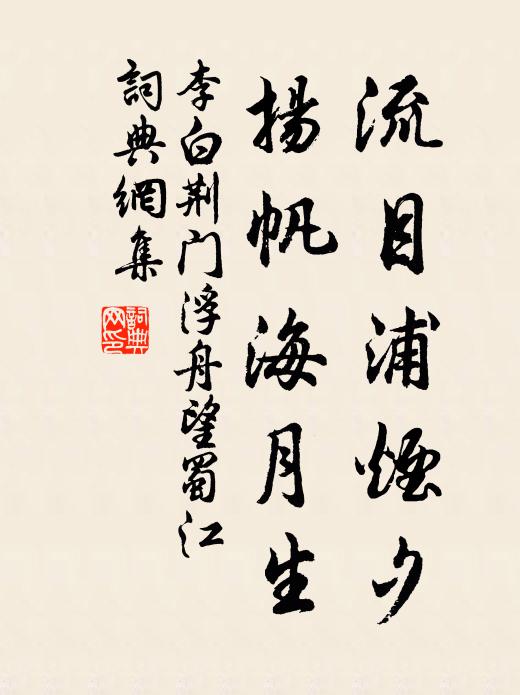 流目浦煙夕
揚帆海月生
李白荆门浮舟望蜀江
詞典網集
詞典网印